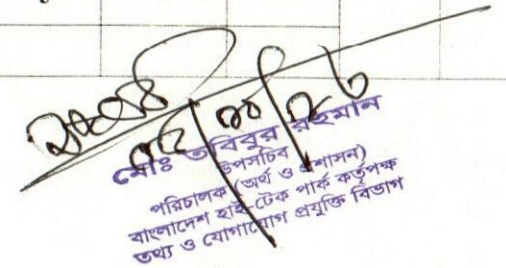 মোঃ তবিবুর রহমান
উপসচিব
পরিচালক (অর্থ ও প্রশাসন)
বাংলাদেশ হাই-টেক পার্ক কর্তৃপক্ষ
তথ্য ও যোগাযোগ প্রযুক্তি বিভাগ